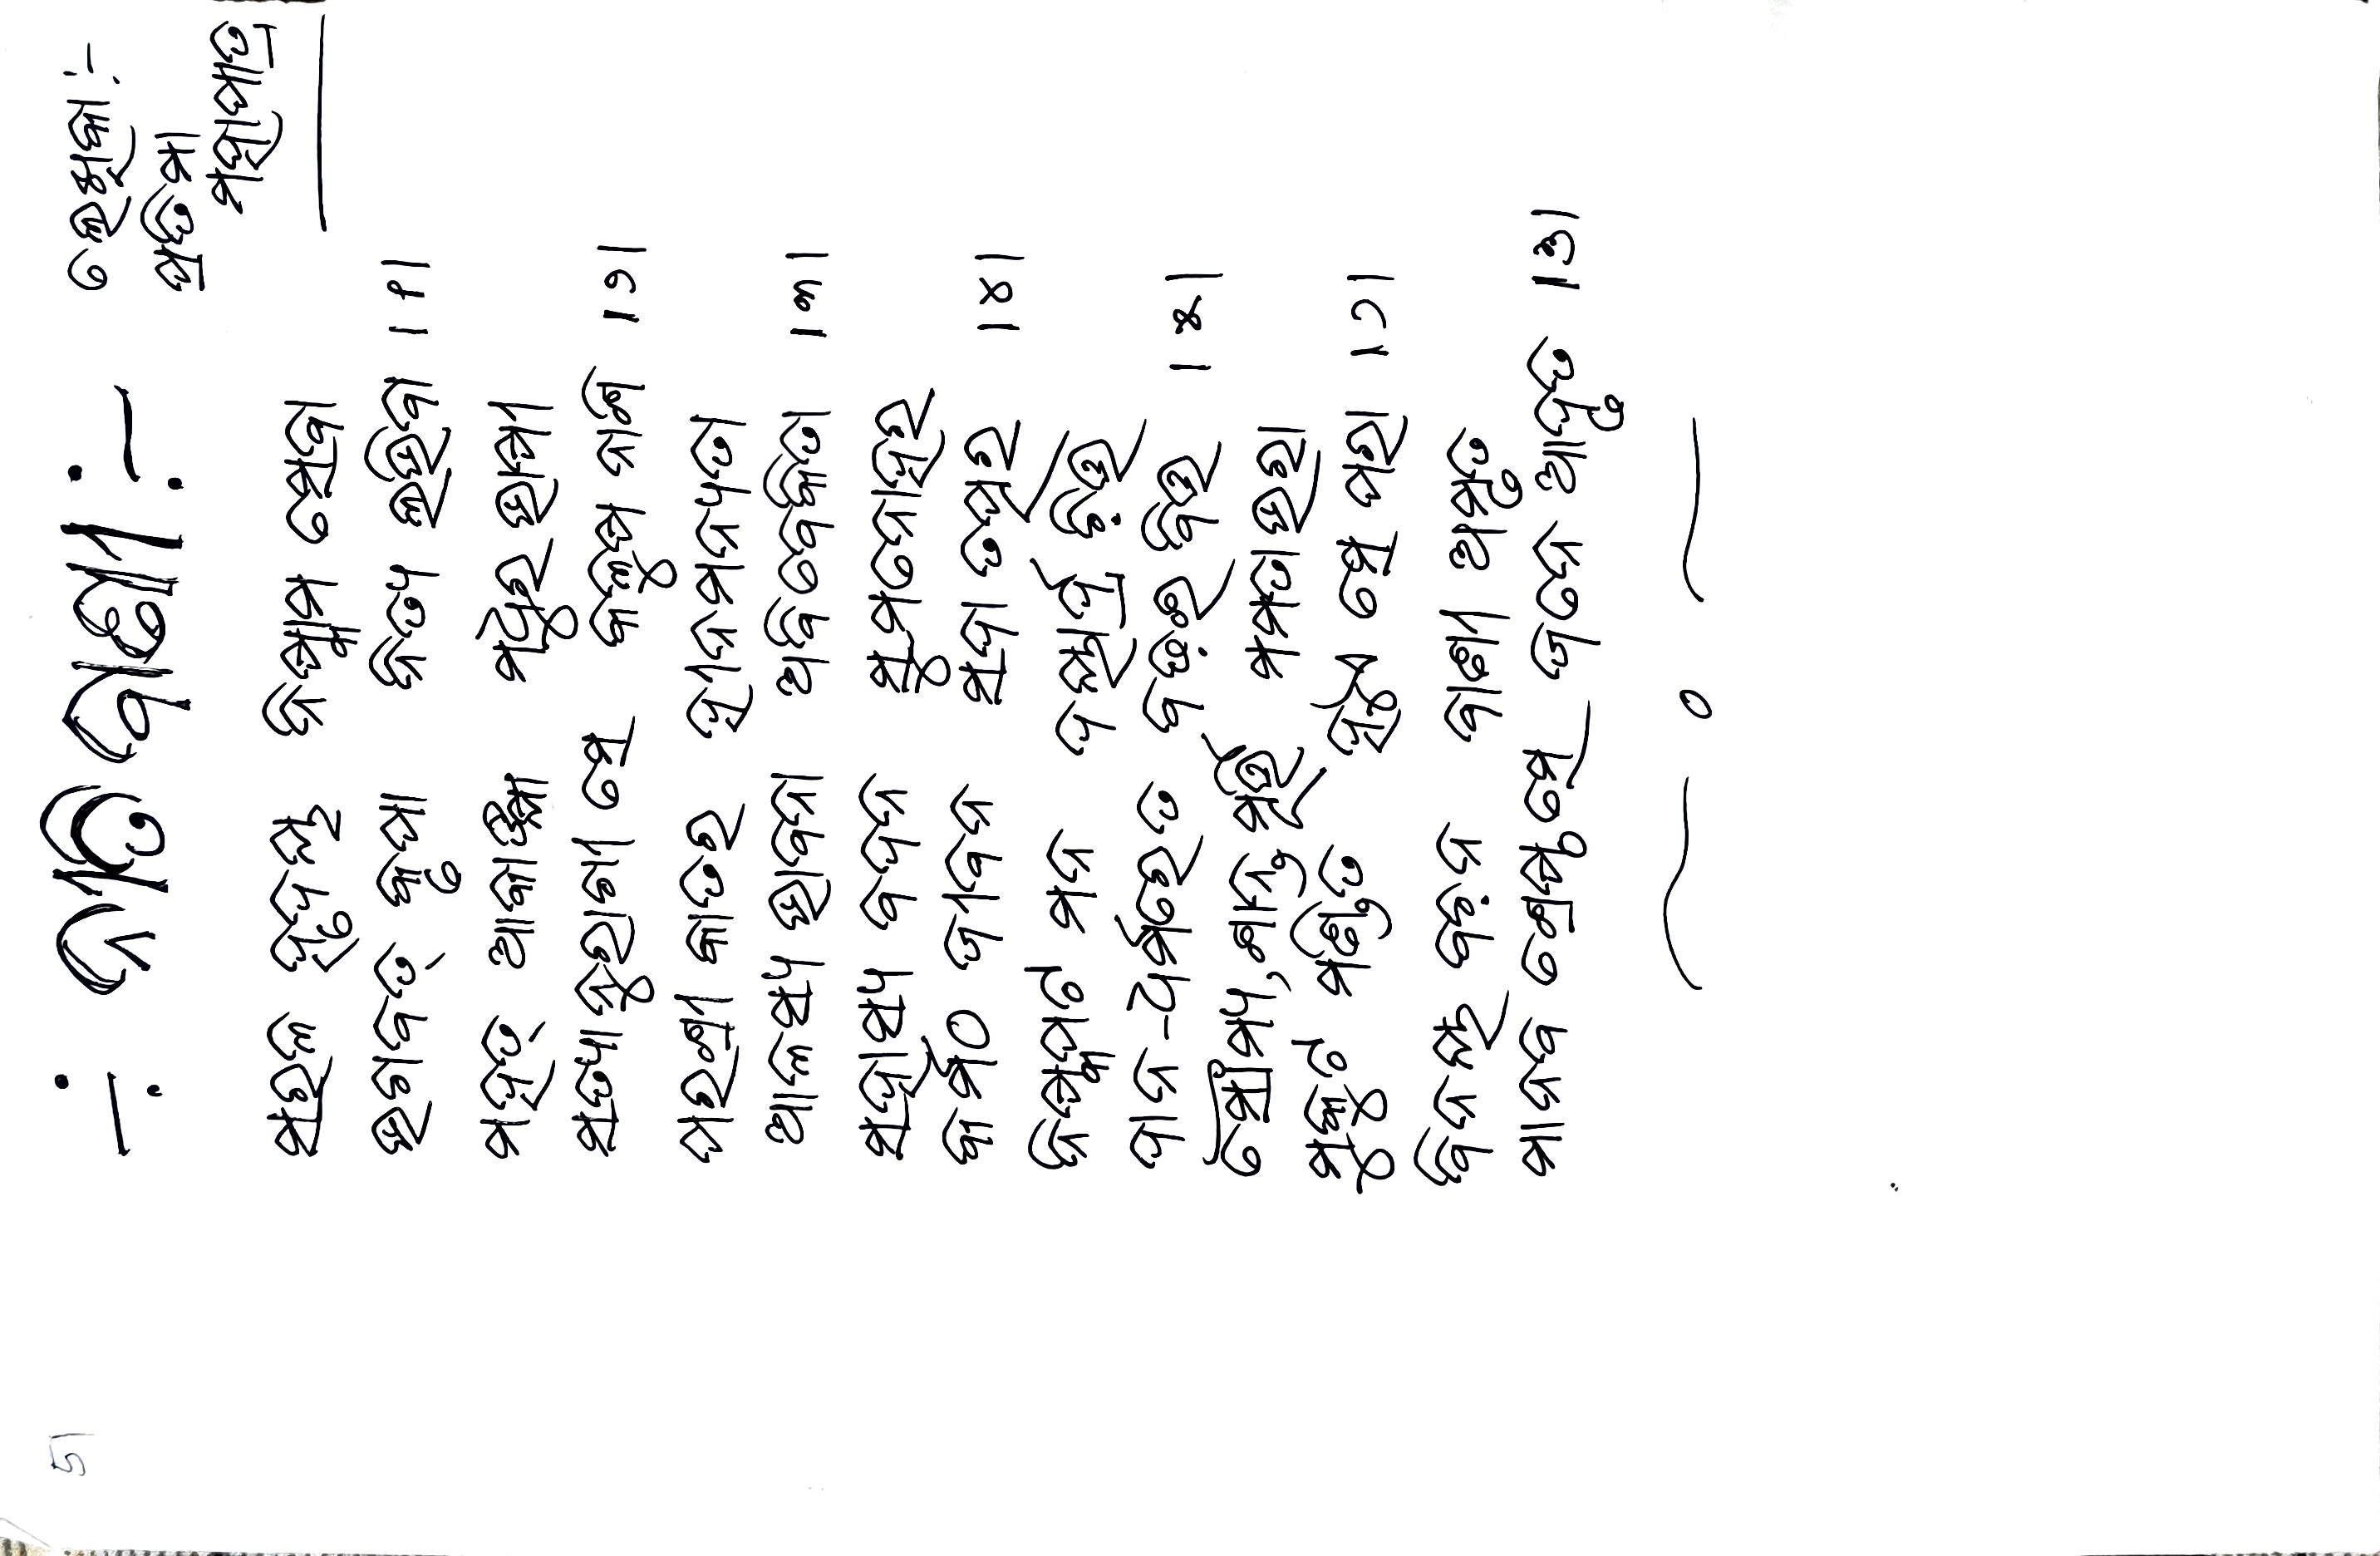 5|
-: ନୀତିବାଣୀ :-
ଲେଖିକା :-
ପ୍ରତିମା
ମହାପାତ୍ର
ସରଳ ହୃଦୟ ନିଷ୍କାମ ସେବା
ଭଗବତ୍ କୃପା ନିତ୍ୟ ଲଭିବା ।୧।
ମହତ୍ ଆକାଙ୍କ୍ଷା ମଧୁର ଭାଷୀ
ସତ୍ୟାନୁରାଗୀ ସେ କଲୁଷ ନାଶି ।୨।
ପରଶ୍ରୀ କାତର ହୀନମନ୍ୟତା
ଆଳସ୍ୟ ଭାବନା ଅବିବେକିତା ।୩।
ସହାସ୍ୟ ବଦନ ସୁମନୋହର
କର୍ମଠ ଜୀବନ ସଦା ତତ୍ପର ।୪।
ନିଷ୍କପଟ ମନ ଦୟାର୍ଦ୍ର ଚିତ୍ତ
ଦାନ-ଧର୍ମରେତ ବଢ଼ଇ ବିତ୍ତ ।୫।
ସୌମ୍ୟ, ଶାନ୍ତ ମୂର୍ତ୍ତି ମମତା ଭରା
ମୁକୁଟ ମଣ୍ଡିତ ସେ ପରା ।୬।
ବିନୟ ବଚନ ବାଣୀ ଅମୃତ
ମାନବ ଶ୍ରେଷ୍ଠ ସେ ଜନେ ଆଦୃତ ।୭।